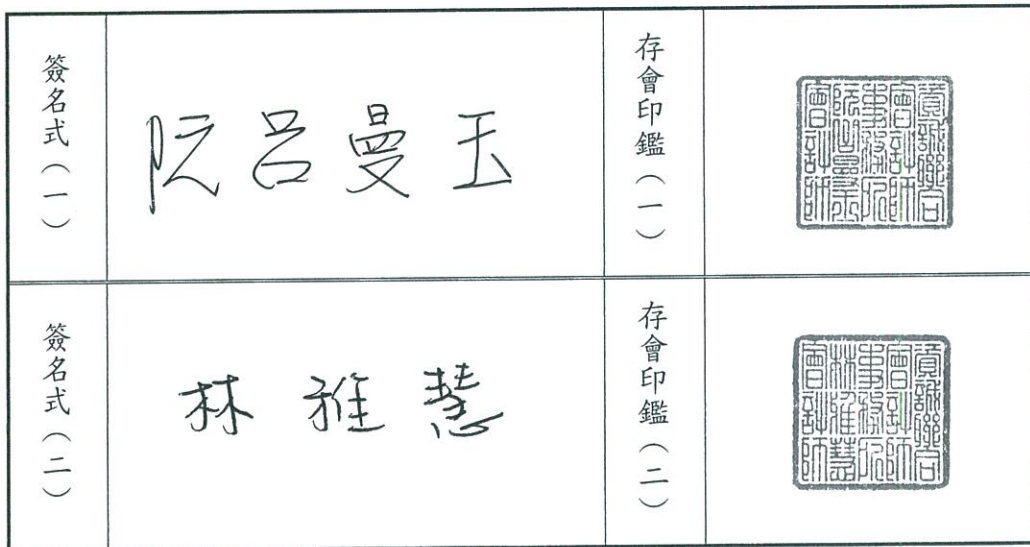 簽名式（一）
阮呂曼玉
存會印鑑（一）
資誠聯合
會計師
事務所
阮呂曼玉
會計師
簽名式（二）
林雅慧
存會印鑑（二）
資誠聯合
會計師
事務所
林雅慧
會計師